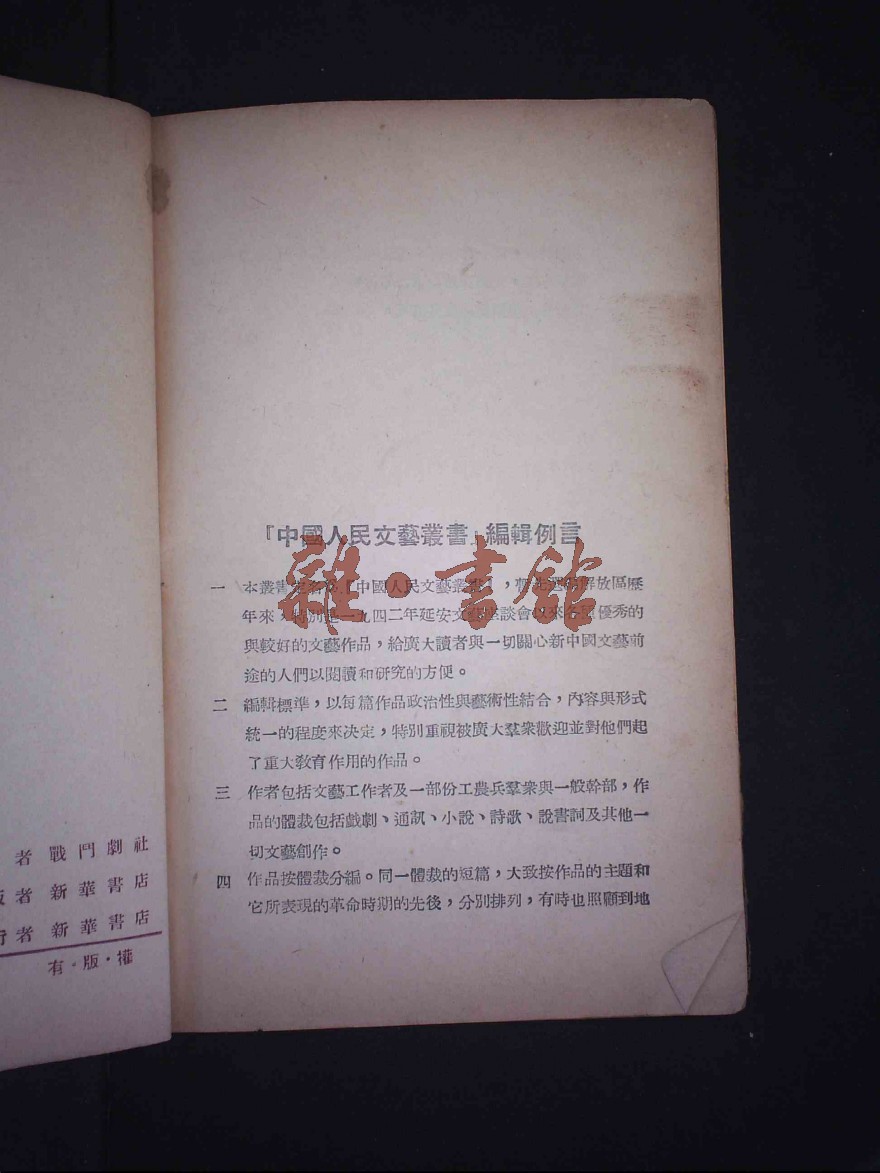 『中國人民文藝叢書』編輯例言
一 本叢書定名為『中國人民文藝叢書』，暫先選編解放區歷
年來，特別是一九四二年延安文藝座談會以來各種優秀的
與較好的文藝作品，給廣大讀者與一切關心新中國文藝前
途的人們以閱讀和研究的方便。
二 編輯標準，以每篇作品政治性與藝術性結合，內容與形式
統一的程度來決定，特別重視被廣大羣衆歡迎並對他們起
了重大教育作用的作品。
三 作者包括文藝工作者及一部份工農兵羣衆與一般幹部，作
品的體裁包括戲劇、通訊、小說、詩歌、說書詞及其他一
切文藝創作。
四 作品按體裁分編。同一體裁的短篇，大致按作品的主題和
它所表現的革命時期的先後，分別排列，有時也照顧到地
者 戰鬥劇社
版者 新華書店
行者 新華書店
有·版·權
雜·書館